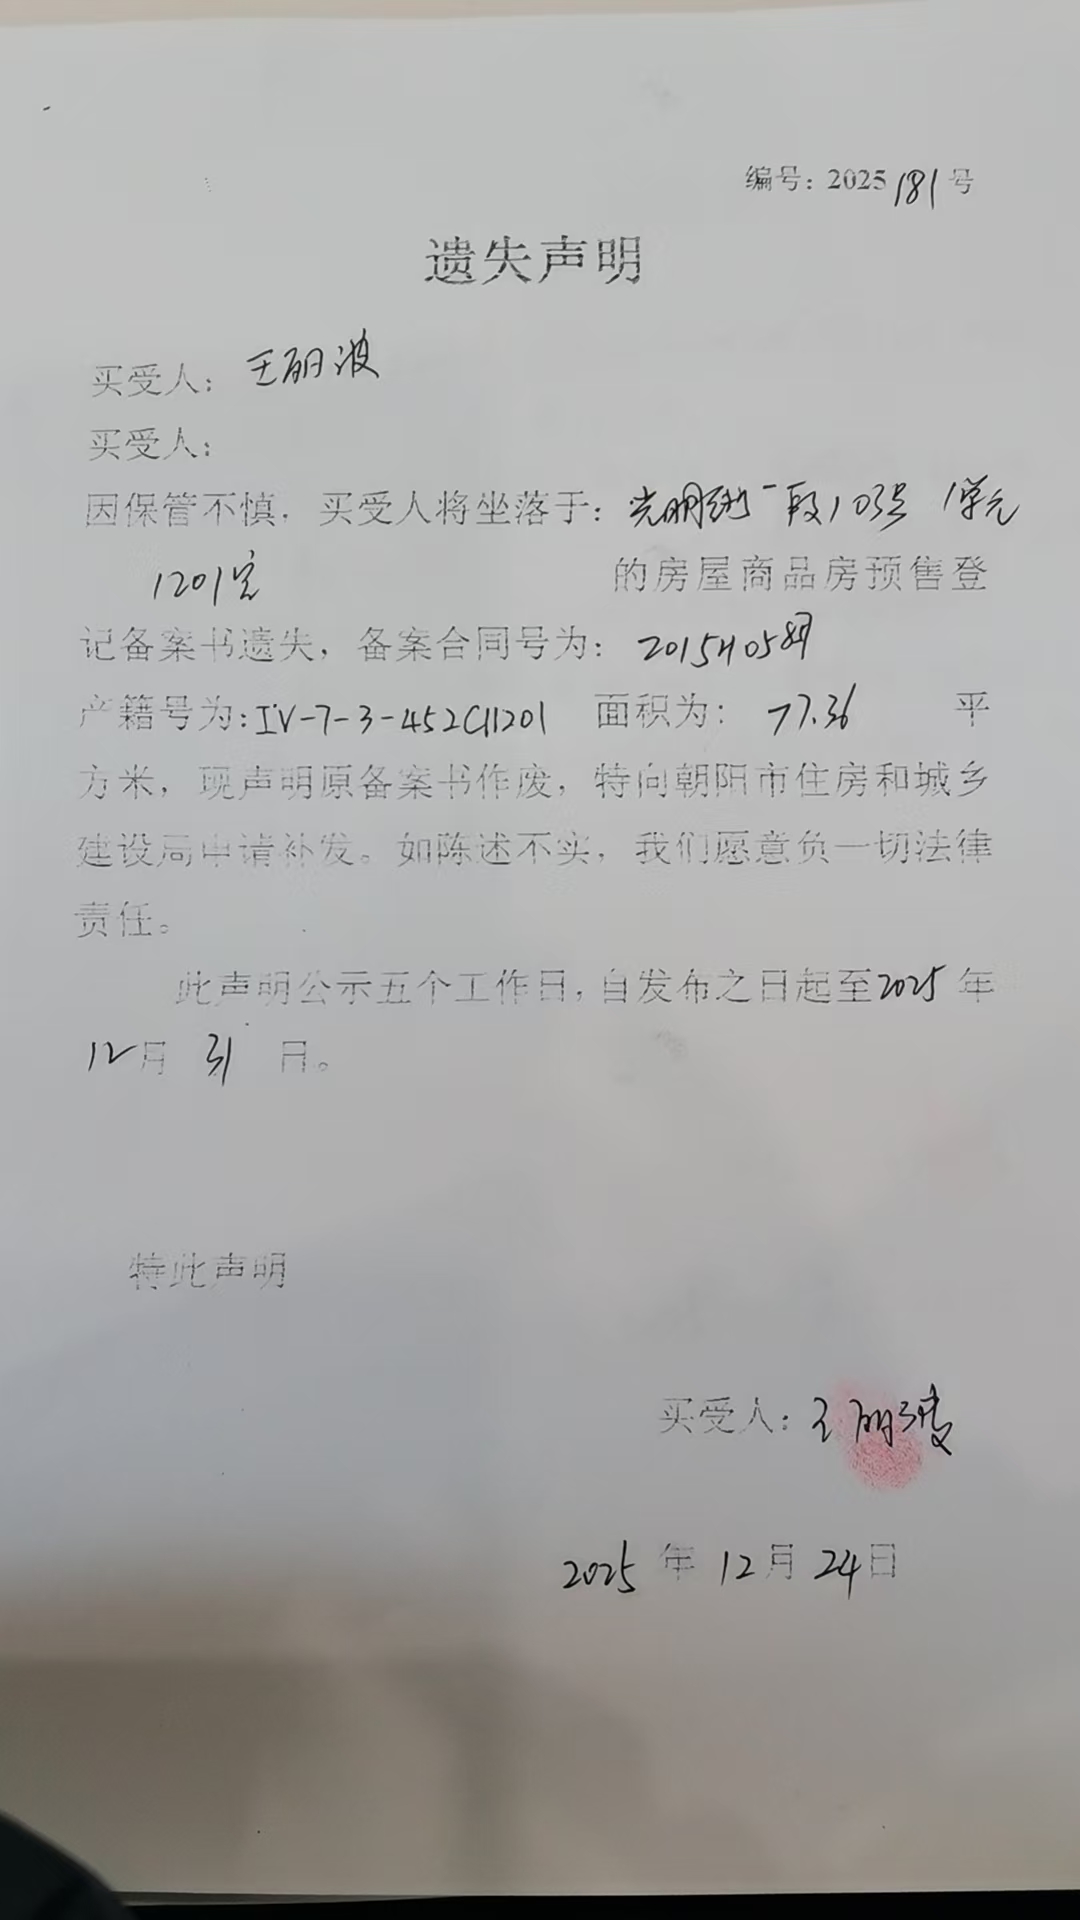 编号：2025181号
遗失声明
买受人：王丽波
买受人：
因保管不慎，买受人将坐落于：光明街一段103号 1单元
1201室 的房屋商品房预售登
记备案书遗失，备案合同号为：2015H05
产籍号为：IV-7-3-452C11201 面积为：77.36 平
方米，现声明原备案书作废，特向朝阳市住房和城乡
建设局申请补发。如陈述不实，我们愿意负一切法律
责任。
此声明公示五个工作日，自发布之日起至2025年
12月31日。
特此声明
买受人：王丽波
2025年12月24日